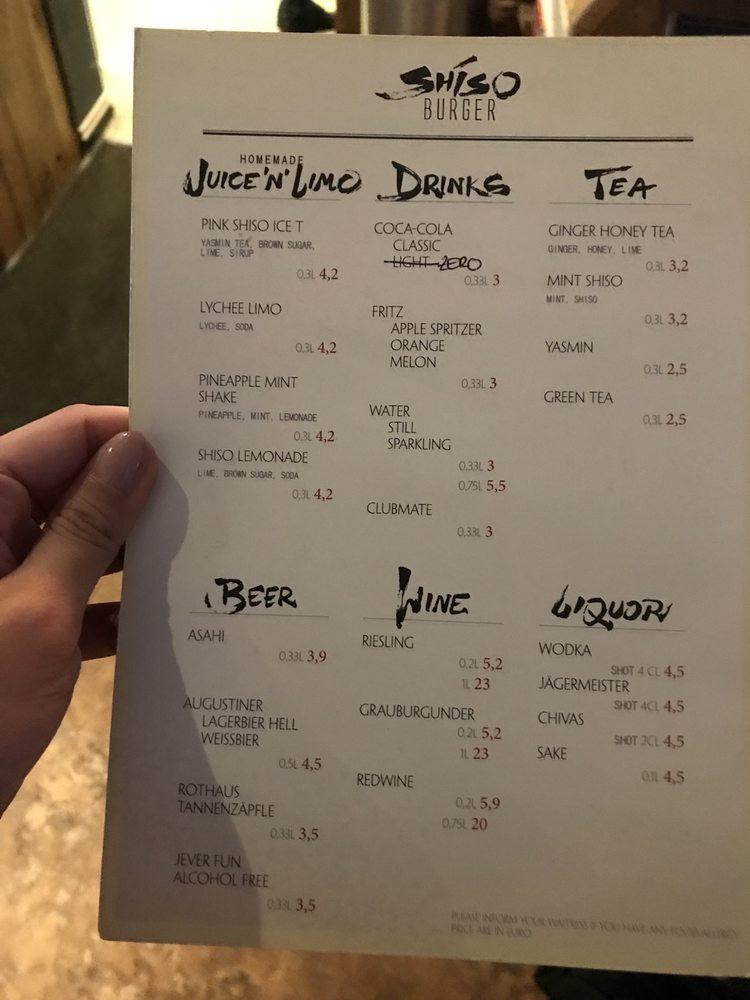 SHISO
BURGER
HOMEMADE
JUICE'N'LIMO
PINK SHISO ICE T
YASMIN TEA, BROWN SUGAR,
LIME, SIRUP
0,3L 4,2
LYCHEE LIMO
LYCHEE, SODA
0,3L 4,2
PINEAPPLE MINT
SHAKE
PINEAPPLE, MINT, LEMONADE
0,3L 4,2
SHISO LEMONADE
LIME, BROWN SUGAR, SODA
0,3L 4,2
DRINKS
COCA-COLA
CLASSIC
LIGHT ZERO
0,33L 3
FRITZ
APPLE SPRITZER
ORANGE
MELON
0,33L 3
WATER
STILL
SPARKLING
0,33L 3
0,75L 5,5
CLUBMATE
0,33L 3
TEA
GINGER HONEY TEA
GINGER, HONEY, LIME
0,3L 3,2
MINT SHISO
MINT, SHISO
0,3L 3,2
YASMIN
0,3L 2,5
GREEN TEA
0,3L 2,5
BEER
ASAHI
0,33L 3,9
AUGUSTINER
LAGERBIER HELL
WEISSBIER
0,5L 4,5
ROTHAUS
TANNENZÄPFLE
0,33L 3,5
JEVER FUN
ALCOHOL FREE
0,33L 3,5
WINE
RIESLING
0,2L 5,2
1L 23
GRAUBURGUNDER
0,2L 5,2
1L 23
REDWINE
0,2L 5,9
0,75L 20
LIQUOR
WODKA
SHOT 4 CL 4,5
JÄGERMEISTER
SHOT 4CL 4,5
CHIVAS
SHOT 2CL 4,5
SAKE
0,1L 4,5
PLEASE INFORM YOUR WAITRESS IF YOU HAVE ANY FOODALLERGY
PRICE ARE IN EURO